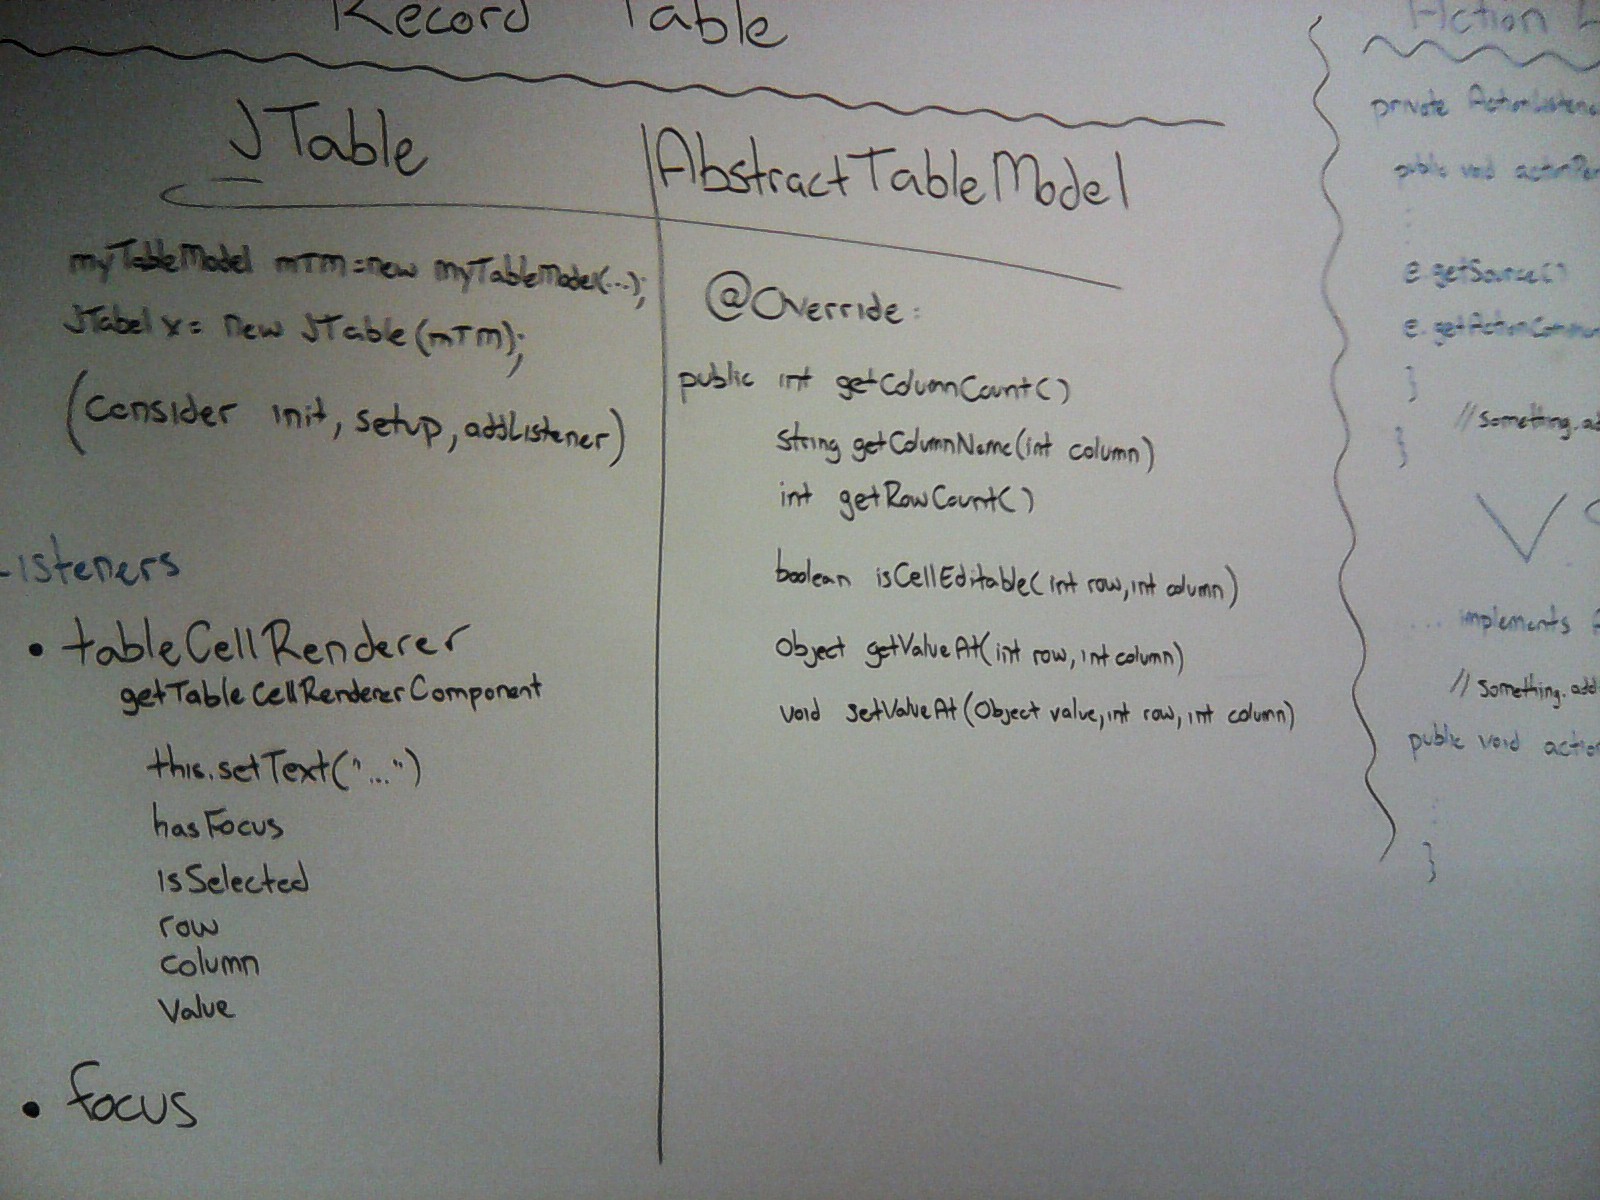 Record Table
JTable
myTableModel mTM = new myTableModel(...);
JTabel x = new JTable(mTM);
(consider init, setup, addListener)
Listeners
• tableCellRenderer
getTableCellRendererComponent
this.setText("...")
hasFocus
isSelected
row
column
value
• focus
AbstractTableModel
@Override:
public int getColumnCount()
String getColumnName(int column)
int getRowCount()
boolean isCellEditable(int row, int column)
Object getValueAt(int row, int column)
void setValueAt(Object value, int row, int column)
Action
private
public void
e.getSource()
}
// something.
}
VS
... implements
// something.add
public void
}